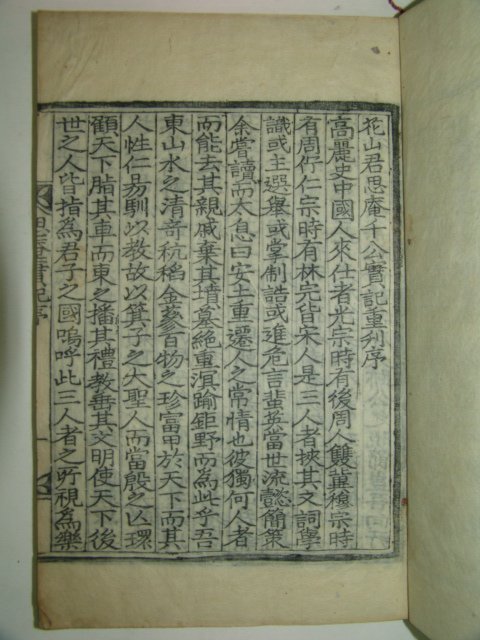 花山君思庵千公實記重刋序
高麗史中國人來仕者光宗時有後周人雙冀穆宗時
有周佇仁宗時有林完皆宋人是三人者挾其文詞學
識或主選舉或掌制誥或進危言蜚英當世流懿簡策
余嘗讀而太息曰安土重遷人之常情也彼獨何人者
而能去其親戚棄其墳墓絶重溟踰鉅野而爲此乎吾
東山水之清奇秔稻金蔘百物之珍富甲於天下而其
人性仁易馴以教故以箕子之大聖人而當殷之亾環
顧天下脂其車而東之播其禮教垂其文明使天下後
世之人皆指爲君子之國嗚呼此三人者之所視爲樂